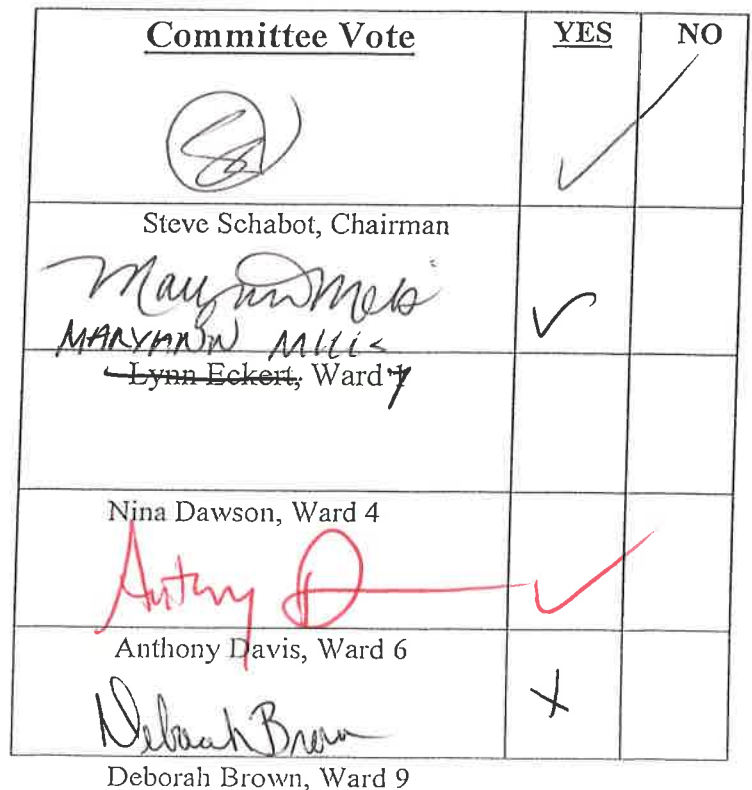 Committee Vote YES NO
Steve Schabot, Chairman
Maryann Mills
MARYANN MILLS
Lynn Eckert, Ward 7
Nina Dawson, Ward 4
Antony D
Anthony Davis, Ward 6
Deborah Brown
Deborah Brown, Ward 9